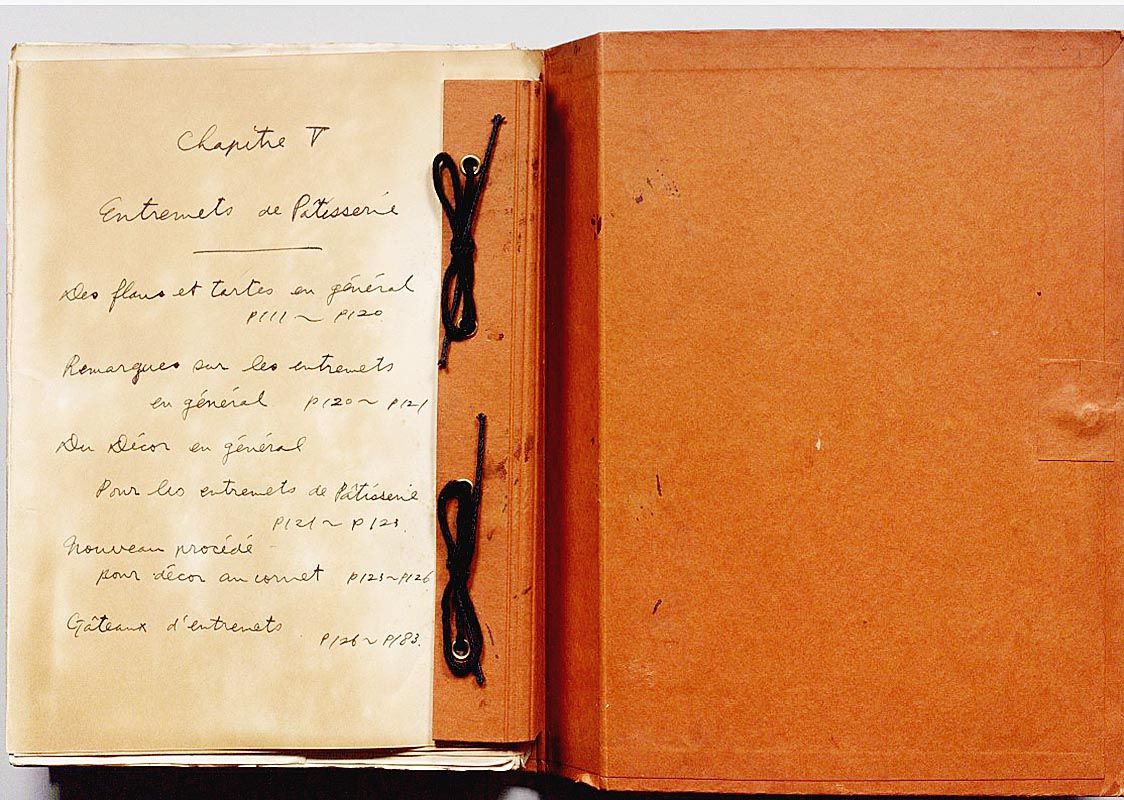 Chapitre V
Entremets de Pâtisserie
Des flans et tartes en général
P111 ~ P120
Remarques sur les entremets
en général P120 ~ P121
Du Décor en général
Pour les entremets de Pâtisserie
P121 ~ P123.
Nouveau procédé
pour décor au cornet P123 ~ P126
Gâteaux d'entremets
P126 ~ P183.